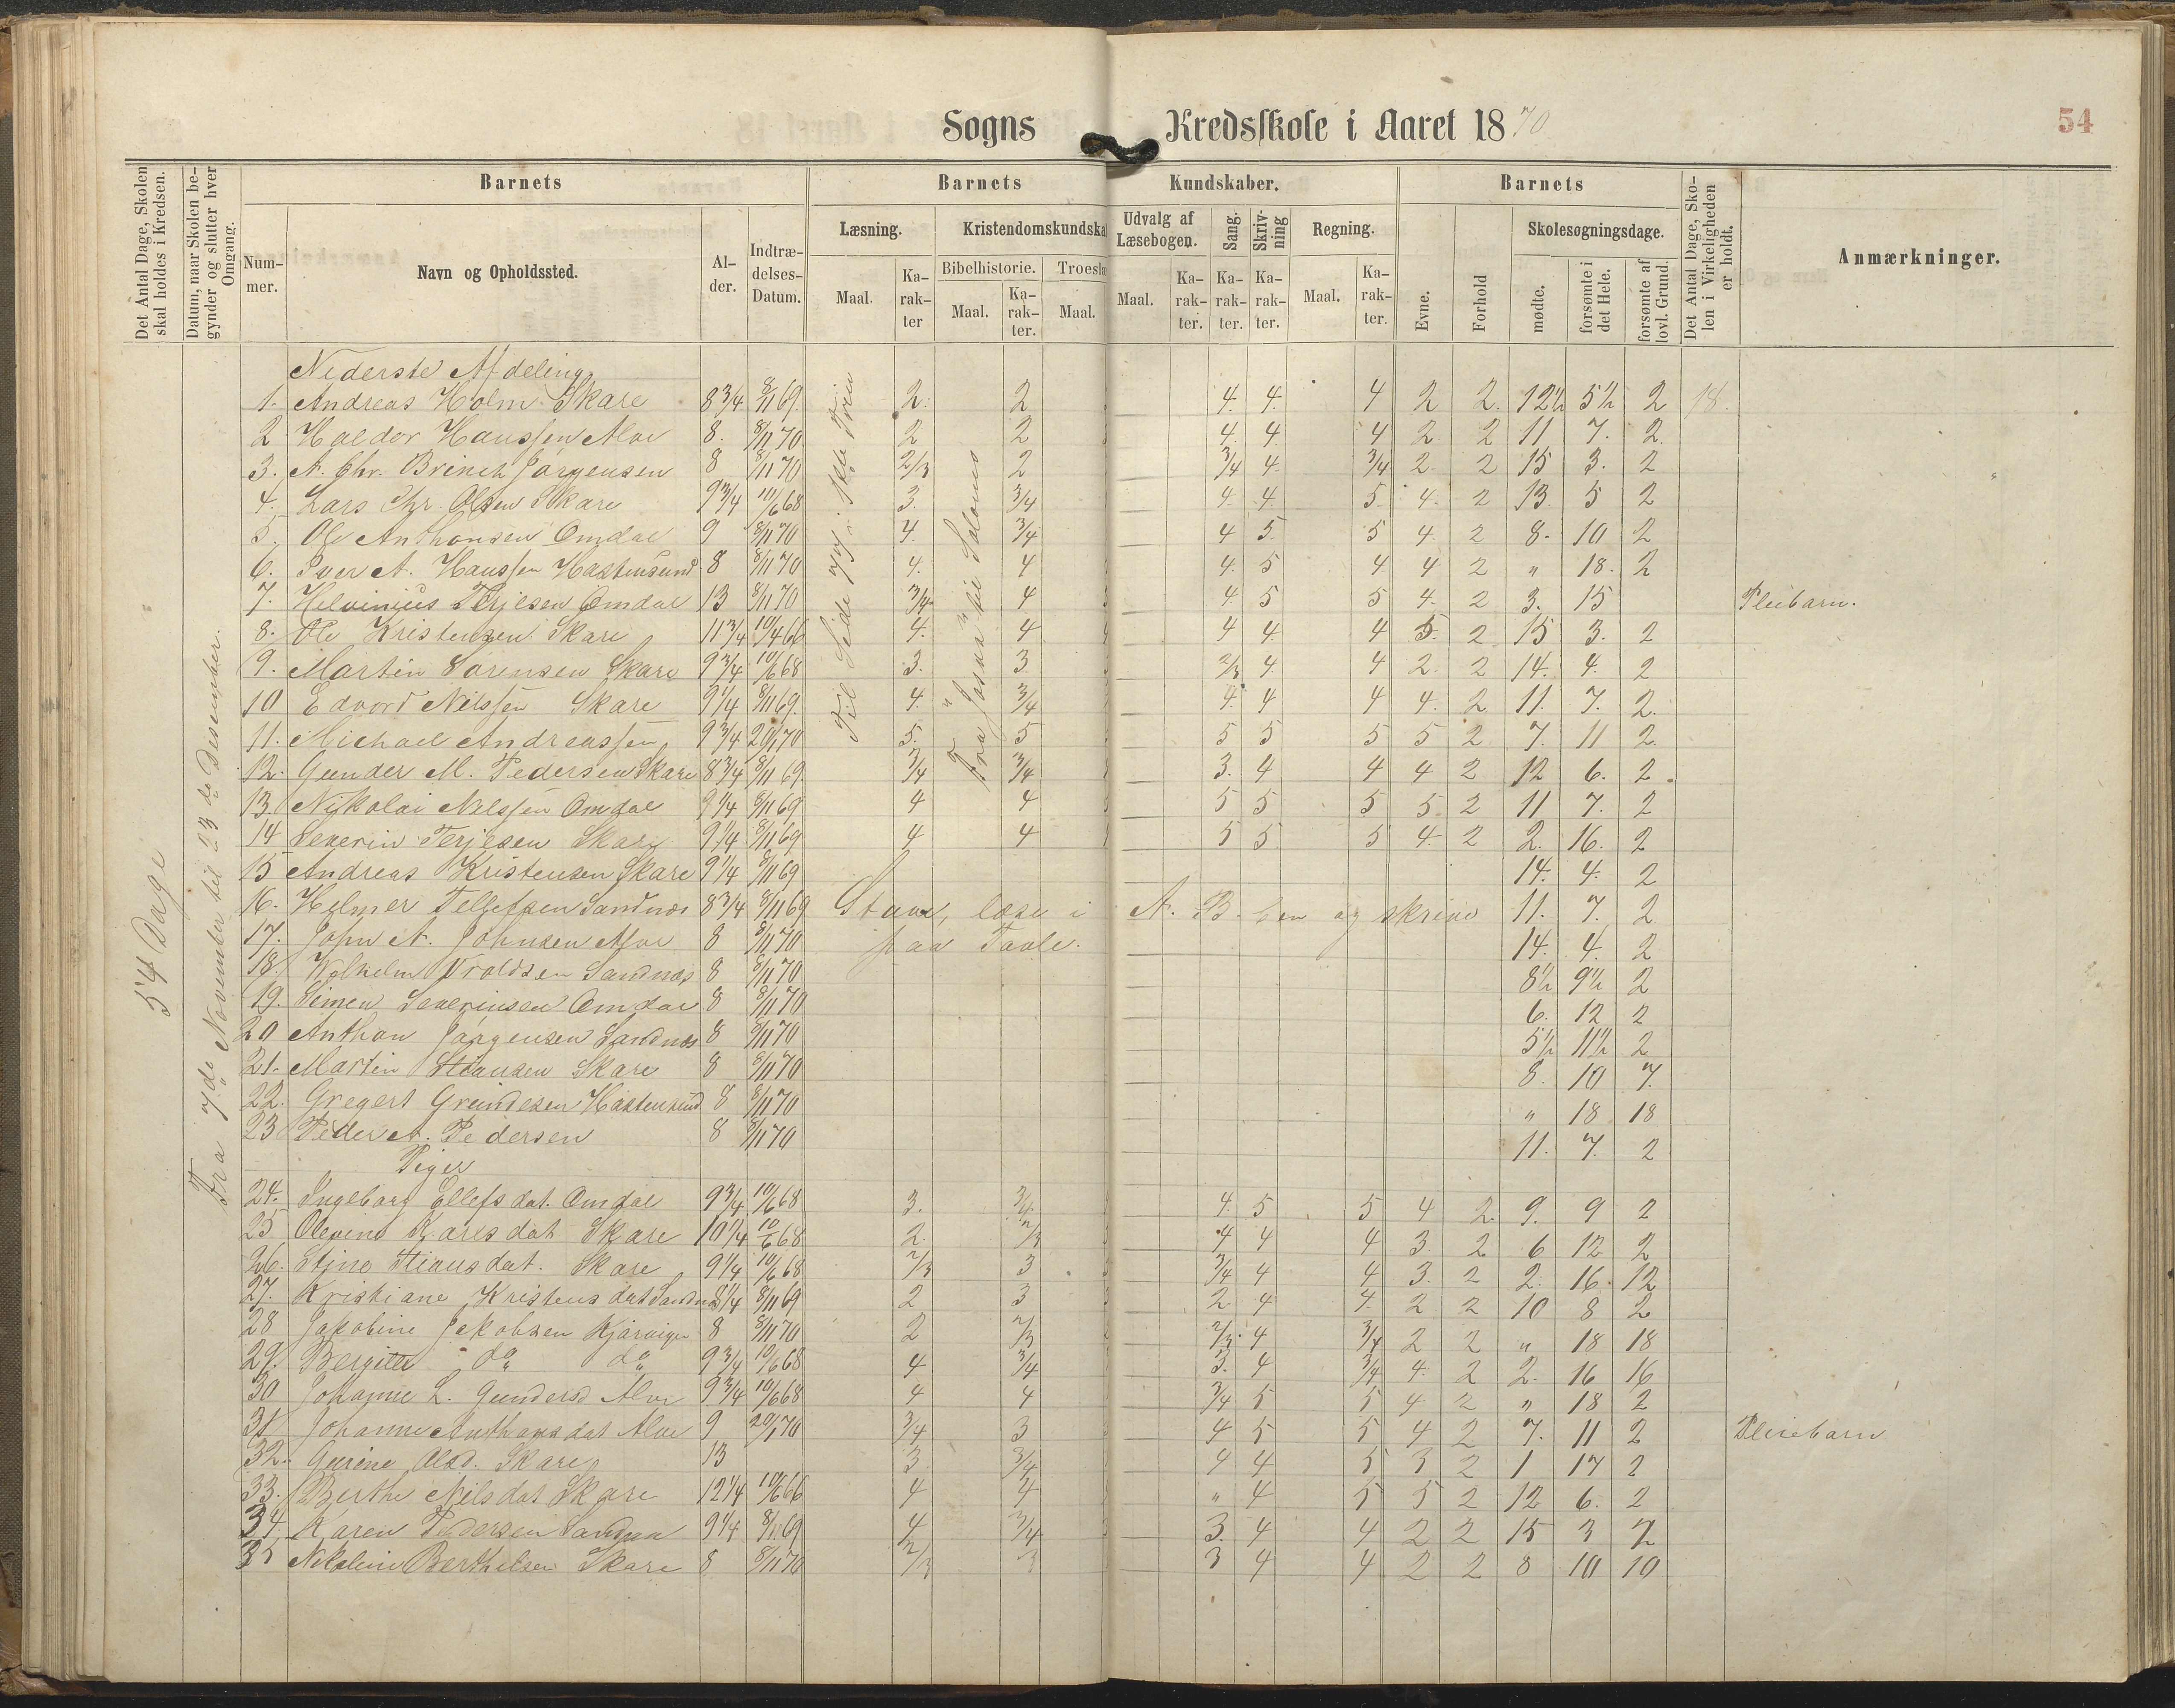 Sogns Kredsskole i Aaret 1870
54
Det Antal Dage, Skolen skal holdes i Kredsen.
Datum, naar Skolen begynder og slutter hver Omgang.
Barnets
Barnets Kundskaber.
Barnets
Det Antal Dage, Skolen i Virkeligheden er holdt.
Anmærkninger.
Nummer.
Navn og Opholdssted.
Alder.
Indtrædelses-Datum.
Læsning.
Kristendomskundska
Udvalg af Læsebogen.
Sang.
Skrivning
Regning.
Evne.
Forhold
Skolesøgningsdage.
Maal.
Karakter
Bibelhistorie.
Troeslæ
Maal.
Karakter.
Maal.
Maal.
Karakter.
Karakter.
Karakter.
Maal.
Karakter.
mødte.
forsømte i det Hele.
forsømte af lovl. Grund.
54 Dage
Fra 7de November til 23de Desember.
Fra Josua til Salomo
Nederste Afdeling
1. Andreas Holm Skare 8 3/4 8/11 69. 2. 2 4. 4. 4 2 2. 12½ 5½ 2 18.
2 Haldor Hanssen Alve 8. 8/11 70 2 2 4. 4. 4 2. 2 11 7. 2.
3. A. Chr. Brinch Jørgensen 8 8/11 70 2/3 2 3/4 4. 3/4 2. 2 15 3. 2
4. Lars Chr. Olsen Skare 9 3/4 10/6 68 3. 3/4 4. 4. 5. 4. 2 13. 5 2
5. Ole Anthonsen Omdal 9 8/11 70 4. 3/4 4 5. 5 4. 2 8. 10 2
6. Iver A. Hanssen Hastensund 8 8/11 70 4. 4 4. 5 4 4 2 " 18. 2
7. Helvinius Terjesen Omdal 13 8/11 70 3/4 4 4. 5 5 4. 2 3. 15 Pleibarn.
8. Ole Kristensen Skare 11 3/4 10/4 66 4. 4 4 4. 4 5. 2 15 3. 2
9. Martin Sørensen Skare 9 3/4 10/6 68 3. 3. 2/3 4. 4 2. 2 14. 4. 2
10 Edvord Nilssen Skare 9 1/4 8/11 69. 4. 3/4 4. 4 4 4. 2 11. 7. 2.
11. Michael Andreassen 9 3/4 20/1 70 5. 5 5 5 5 5 2 7. 11 2.
12. Gunder M. Pedersen Skare 8 3/4 8/11 69. 3/4 3/4 3. 4 4 4 2 12 6. 2
13. Nikolai Nilssen Omdal 9 1/4 8/11 69 4 4 5 5 5 5 2 11 7. 2
14 Severin Terjesen Skare 9 1/4 8/11 69 4 4 5 5 5 4. 2 2. 16. 2
15 Andreas Kristensen Skare 9 1/4 8/11 69 14. 4. 2
16. Helmer Tellefsen Sandnæs 8 3/4 8/11 69 Stave, læse i A. B. ben og skrive 11. 7. 2
17. John A. Johnsen Alve 8 8/11 70 paa Tavle. 14. 4. 2
18. Vroldsen Sandnæs 8 8/11 70 8½ 9½ 2
19. Simen Severinsen Omdal 8 8/11 70 6. 12 2
20 Anthon Jørgensen Sandnæs 8 8/11 70 5½ 11½ 2
21. Martin Stiansen Skare 8 8/11 70 8. 10 7.
22. Gregert Hastensund 8 8/11 70 " 18 18
23 Peder A. Pedersen 8 8/11 70 11. 7. 2
Piger
24. Ingeborg Ellefsdat. Omdal 9 3/4 10/6 68 3. 3/4. 4. 5 5 4 2. 9. 9 2
25 Olevine Karesdat Skare 10 1/4 10/6 68 2. 2/3 4 4 4 3. 2 6 12 2
26. Stine Stiansdat. Skare 9 1/4 10/6 68 2/3 3 3/4 4 4 3. 2 2. 16. 12
27. Kristiane Kristensdat Sandnæs 8 1/4 8/11 69 2 3 2 4 4. 2 2 10 8 2
28 Jakobine Jakobsen Kjørvigen 8 8/11 70 2 2/3 2/3. 4 3/4 2 2 " 18 18
29. Bergitte do do 9 3/4 10/6 68 4 3/4 3. 4 3/4 4. 2 2. 16 16
30 Johanne L. Gundersd Alve 9 3/4 10/6 68 4 4 3/4 5 5 4 2 " 18 2
31 Johanne Anthonsdat Alve 9 20/1 70 3/4 3 4 5 5 4 2 7. 11 2 Pleiebarn
32. Gurine Olsd. Skare 13 3. 3/4 4 4 5 3 2 1 17 2
33. Berthe Nilsdat Skare 12 1/4 10/6 66 4 4 " 4 5 5 2 12 6. 2
34. Karen Pedersen Sandnæs 9 1/4 8/11 69 4 3/4 3. 4 4 2 2 15 3 2
35 Nikoline Berthelsen Skare 8 8/11 70 2/3 3 3 4 4 2 2 8 10 10